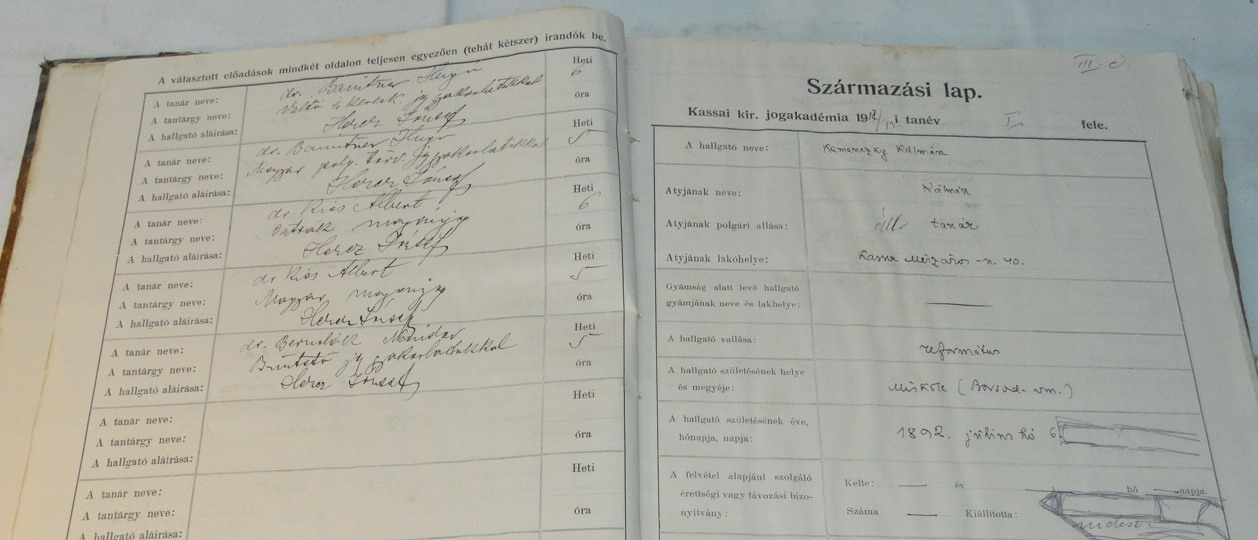 A választott előadások mindkét oldalon teljesen egyezően (tehát kétszer) irandók be.
A tanár neve: dr. Baumtner Hugó Heti 6
A tantárgy neve: Váltó s keresk. jog gyakorlatokkal óra
A hallgató aláírása: Hercz József
A tanár neve: dr. Baumtner Hugó Heti 5
A tantárgy neve: Magyar polg. törv. jog gyakorlatokkal óra
A hallgató aláírása: Hercz József
A tanár neve: dr. Kiss Albert Heti 6
A tantárgy neve: Osztrák magánjog óra
A hallgató aláírása: Hercz József
A tanár neve: dr Kiss Albert Heti 5
A tantárgy neve: Magyar magánjog óra
A hallgató aláírása: Hercz József
A tanár neve: dr. Nándor Heti 5
A tantárgy neve: Büntető jog gyakorlatokkal óra
A hallgató aláírása: Hercz József
Heti
A tanár neve:
A tantárgy neve: óra
A hallgató aláírása:
Heti
A tanár neve:
A tantárgy neve: óra
A hallgató aláírása:
III é.
Származási lap.
Kassai kir. jogakadémia 1912/13 i tanév I. fele.
A hallgató neve: Kemenczky Kálmán
Atyjának neve: Kálmán
Atyjának polgári állása: áll tanár
Atyjának lakóhelye: Kassa Mészáros-u. 40.
Gyámság alatt levő hallgató
gyámjának neve és lakhelye: —
A hallgató vallása: református
A hallgató születésének helye
és megyéje: Miskolc (Borsod-vm.)
A hallgató születésének éve,
hónapja, napja: 1892. július hó 6.
A felvétel alapjául szolgáló
érettségi vagy távozási bizo-
nyitvány:
Kelte: — év — hó — napja.
Száma — Kiállította: